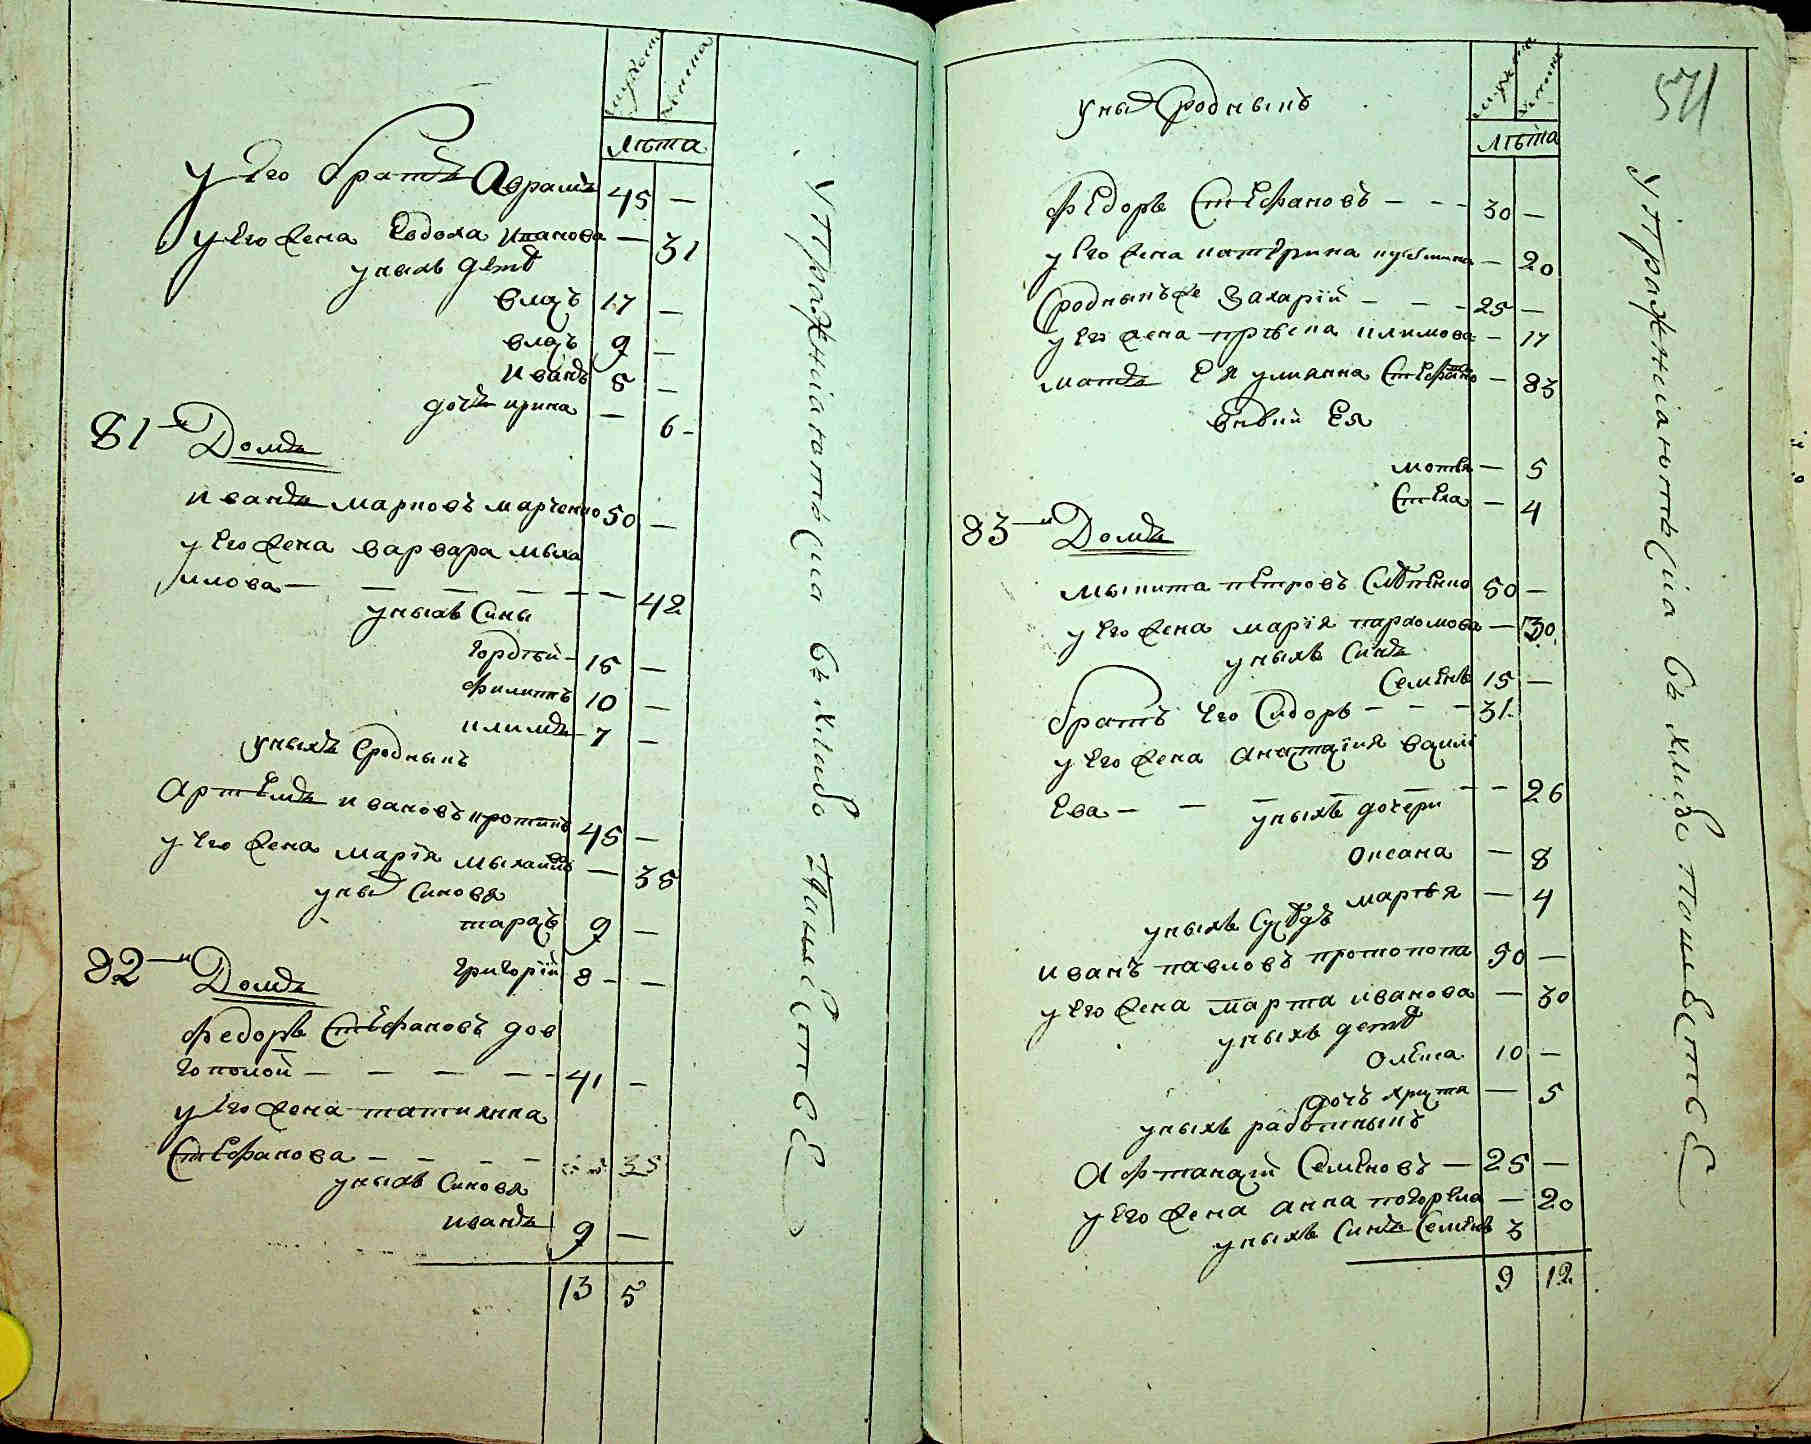 мужеска женска
лѣта
у Его братъ Аврамъ 45 —
у Его жена Евдоха Иванова — 31
у ныхъ дети
Влаз 17 —
Влаз 9 —
Иванъ 5 —
дочъ ирина — 6 -
81 й Домъ
Иванъ марковъ марченко 50 —
у Его жена варвара мыха
илова — — — — — 42
у ныхъ Сины
Гордѣй - 15 —
филипъ 10 —
климъ - 7 —
у ныхъ Сродныкъ
Артемъ ивановъ 45 —
у Его жена марія мыхайло — 38
у ных Синовя
тарасъ 9 —
Григорій 8 - —
82 й Домъ
федоръ Стефановъ дов
гополой — — — — - 41 —
у Его жена татиянна
Стефанова — — — — 35
у ныхъ Синовя
иванъ 9 —
13 5
у пражніяютъся въ хлибо пашестве
571
мужеска женска
лѣта
у ных Сродныкъ
федоръ Стефановъ — - - 30 —
у Его жена катерина — 20
Сродныкъ же Захарій — - - 25 —
у Его жена климова — 17
матъ Ея улиянна Стефано — 83
внвки Ея
мотя — 5
Стеха — 4
83 й Домъ
мыкита петровъ 50 —
у Его жена марія пархомова — 30
у ныхъ Синъ
Семенъ 15 —
братъ Его Сидоръ - - - 31
у Его жена Анастасия васил
Ева — — — — - - 26
у ныхъ дочери
Оксана — 8
марѳя — 4
у ныхъ Сусѣдъ
иванъ павловъ протопопа 50 —
у Его жена марта иванова — 30
у ныхъ дети
Олекса 10 —
дочъ христя — 5
у ныхъ работныкъ
Афтанасий Семеновъ — 25 —
у Его жена анна — 20
у ныхъ Синъ Семенъ 3
9 12
у пражніяютъся въ хлибо пашестве